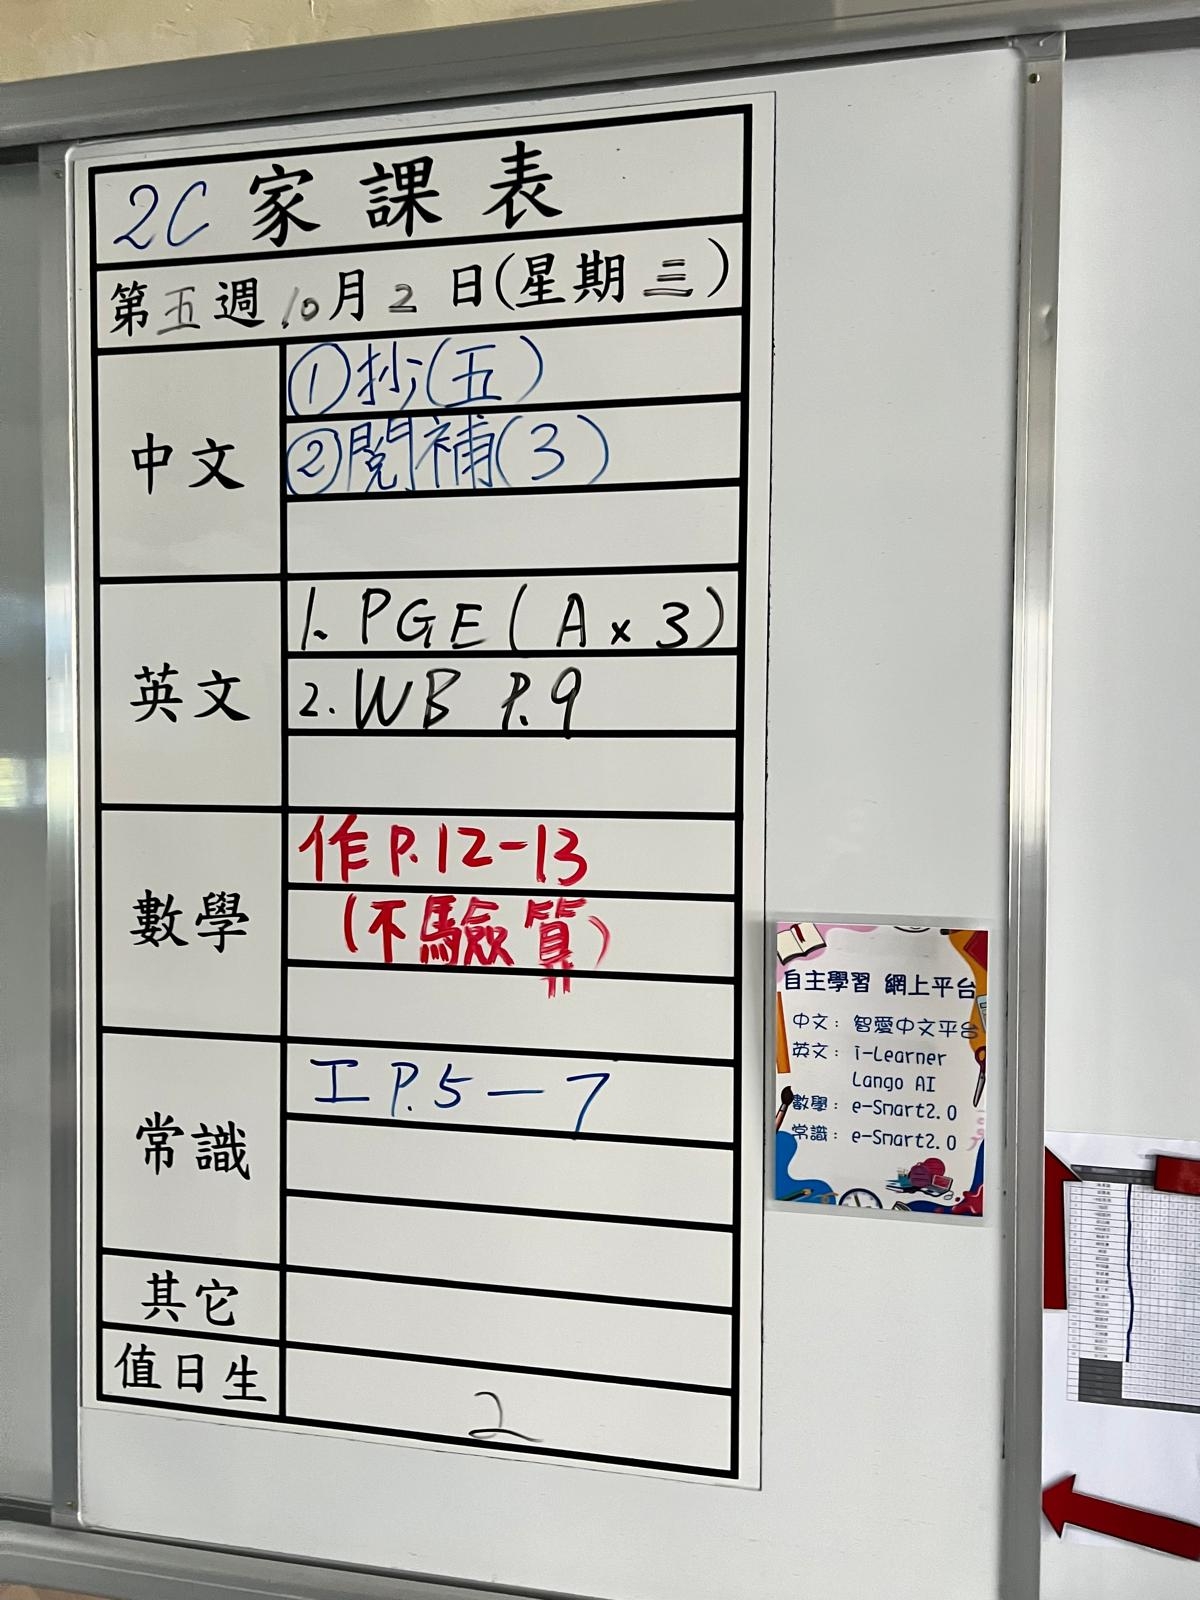 2C 家課表
第五週 10月2日(星期三)
中文
①抄(五)
②閱補(3)
英文
1. PGE (A x 3)
2. WB P.9
數學
作 P.12-13
(不驗算)
常識
工 P.5-7
其它
值日生
2
自主學習 網上平台
中文: 智愛中文平台
英文: i-Learner
Lango AI
數學: e-Smart2.0
常識: e-Smart2.0